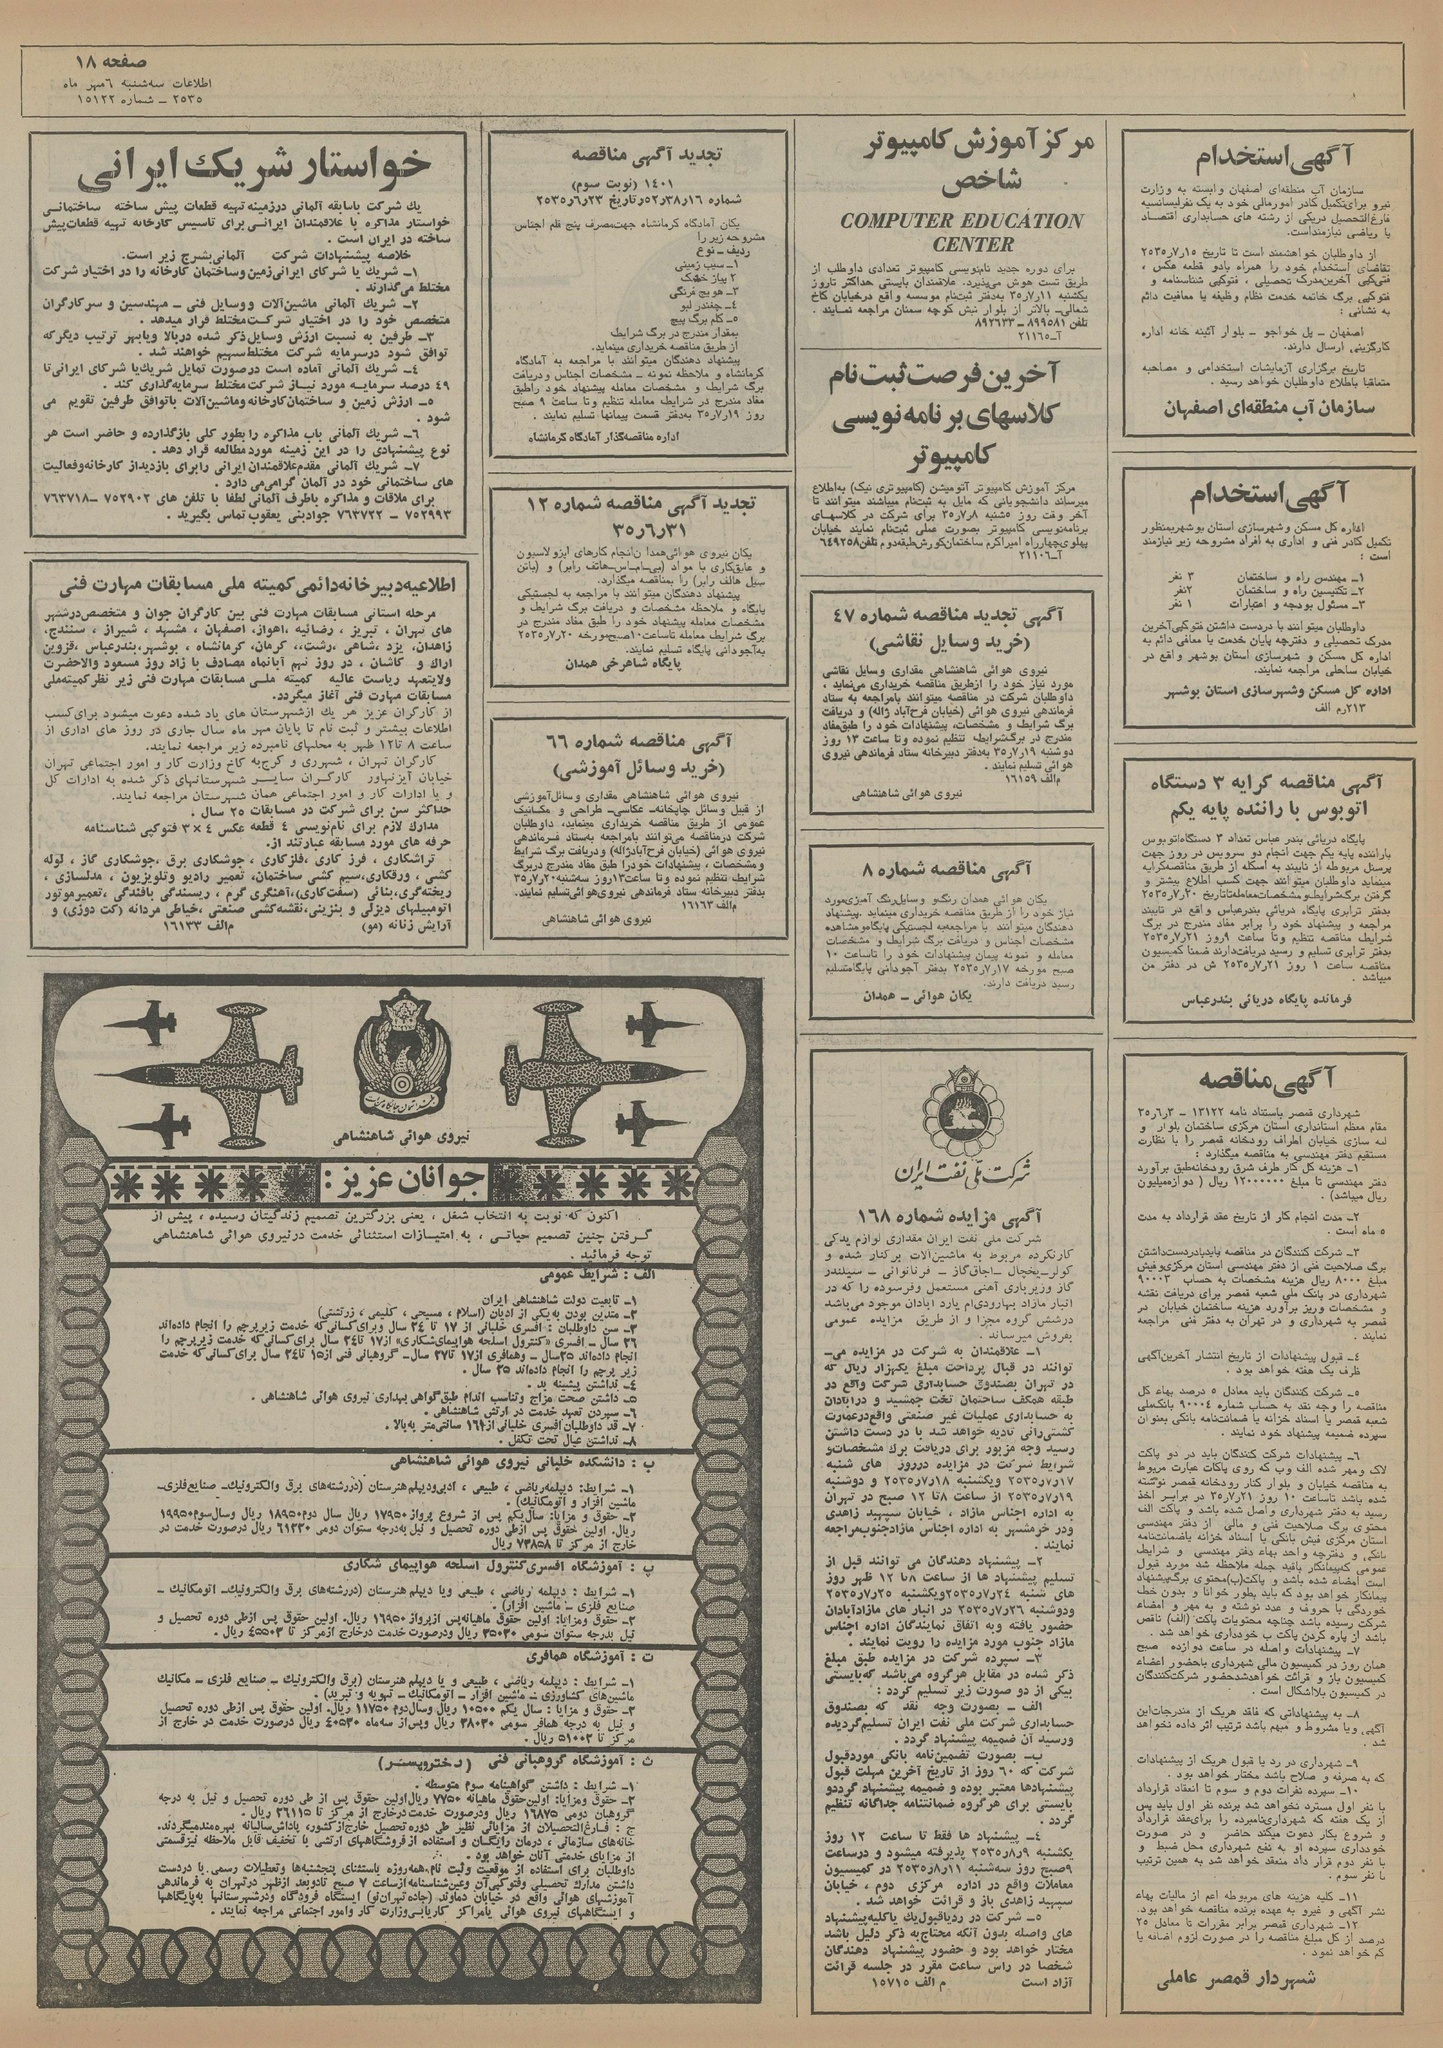 صفحه ۱۸
اطلاعات سه‌شنبه ۶ مهر ماه
۲۵۳۵ ـ شماره ۱۵۱۲۲
آگهی استخدام
سازمان آب منطقه‌ای اصفهان وابسته به وزارت
نیرو برای تکمیل کادر امورمالی خود به یک نفرلیسانسیه
فارغ‌التحصیل دریکی از رشته های حسابداری اقتصاد
یا ریاضی نیازمنداست.
از داوطلبان خواهشمند است تا تاریخ ۲۵۳۵ر۷ر۱۵
تقاضای استخدام خود را همراه بادو قطعه عکس ،
فتوکپی آخرین‌مدرک تحصیلی ، فتوکپی شناسنامه و
فتوکپی برگ خاتمه خدمت نظام وظیفه یا معافیت دائم
به نشانی :
اصفهان ـ پل خواجو ـ بلوار آئینه خانه اداره
کارگزینی ارسال دارند.
تاریخ برگزاری آزمایشات استخدامی و مصاحبه
متعاقبا باطلاع داوطلبان خواهد رسید .
سازمان آب منطقه‌ای اصفهان
آگهی استخدام
اداره کل مسکن وشهرسازی استان بوشهربمنظور
تکمیل کادر فنی و اداری به افراد مشروحه زیر نیازمند
است :
۱ـ مهندس راه و ساختمان ۳ نفر
۲ـ تکنیسین راه و ساختمان ۲نفر
۳ـ مسئول بودجه و اعتبارات ۱ نفر
داوطلبان میتوانند با دردست داشتن فتوکپی‌آخرین
مدرک تحصیلی و دفترچه پایان خدمت یا معافی دائم به
اداره کل مسکن و شهرسازی استان بوشهر واقع در
خیابان ساحلی مراجعه نمایند.
اداره کل مسکن وشهرسازی استان بوشهر
۲۱۳رم الف
آگهی مناقصه کرایه ۳ دستگاه
اتوبوس با راننده پایه یکم
پایگاه دریائی بندر عباس تعداد ۳ دستگاه‌اتوبوس
باراننده پایه یکم جهت انجام دو سرویس در روز جهت
پرسنل مربوطه از نایبند به اسکله از طریق مناقصه‌کرایه
مینماید داوطلبان میتوانند جهت کسب اطلاع بیشتر و
گرفتن برگ‌شرایط‌ومشخصات‌معامله‌تاتاریخ ۲۵۳۵ر۷ر۲۰
بدفتر ترابری پایگاه دریائی بندرعباس واقع در نایبند
مراجعه و پیشنهاد خود را برابر مفاد مندرج در برگ
شرایط مناقصه تنظیم وتا ساعت ۹روز ۲۵۳۵ر۷ر۲۱
بدفتر ترابری تسلیم و رسید دریافت‌دارند ضمنا کمیسیون
مناقصه ساعت ۱ روز ۲۵۳۵ر۷ر۲۱ ش در دفتر من
میباشد .
فرمانده پایگاه دریائی بندرعباس
آگهی مناقصه
شهرداری قمصر باستناد نامه ۱۳۱۲۲ ـ ۳۵ر۶ر۳
مقام معظم استانداری استان مرکزی ساختمان بلوار و
لبه سازی خیابان اطراف رودخانه قمصر را با نظارت
مستقیم دفتر مهندسی به مناقصه میگذارد :
۱ـ هزینه کل کار طرف شرق رودخانه‌طبق برآورد
دفتر مهندسی تا مبلغ ۱۲۰۰۰۰۰۰ ریال ( دوازه‌میلیون
ریال میباشد) .
۲ـ مدت انجام کار از تاریخ عقد قرارداد به مدت
۵ ماه است .
۳ـ شرکت کنندگان در مناقصه بایدبادردست‌داشتن
برگ صلاحیت فنی از دفتر مهندسی استان مرکزی‌وفیش
مبلغ ۸۰۰۰ ریال هزینه مشخصات به حساب ۹۰۰۰۳
شهرداری در بانک ملی شعبه قمصر برای دریافت نقشه
و مشخصات وریز برآورد هزینه ساختمان خیابان در
قمصر به شهرداری و در تهران به دفتر فنی مراجعه
نمایند .
۴ـ قبول پیشنهادات از تاریخ انتشار آخرین‌آگهی
ظرف یک هفته خواهد بود .
۵ـ شرکت کنندگان باید معادل ۵ درصد بهاء کل
مناقصه را وجه نقد به حساب شماره ۹۰۰۰۴ بانک‌ملی
شعبه قمصر یا اسناد خزانه یا ضمانت‌نامه بانکی بعنوان
سپرده ضمیمه پیشنهاد خود نمایند .
۶ـ پیشنهادات شرکت کنندگان باید در دو پاکت
لاک ومهر شده الف وب که روی پاکات عبارت مربوط
به مناقصه خیابان و بلوار کنار رودخانه قمصر نوشته
شده باشد تاساعت ۱۰ روز ۳۵ر۷ر۲۱ در برابر اخذ
رسید به دفتر شهرداری واصل شده باشد و پاکت الف
محتوی برگ صلاحیت فنی و مالی از دفتر مهندسی
استان مرکزی فیش بانکی یا اسناد خزانه یاضمانت‌نامه
بانکی و دفترچه واحد بهاء دفتر مهندسی و شرایط
عمومی که‌پیمانکار باقید جمله ملاحظه شد مورد قبول
است امضاء شده باشد و پاکت(ب)محتوی برگ‌پیشنهاد
پیمانکار خواهد بود که باید بطور خوانا و بدون خط
خوردگی با حروف و عدد نوشته و به مهر و امضاء
شرکت رسیده باشد چنانچه محتویات پاکت (الف) ناقص
باشد از پاره کردن پاکت ب خودداری خواهد شد .
۷ـ پیشنهادات واصله در ساعت دوازده صبح
همان روز در کمیسیون مالی شهرداری باحضور اعضاء
کمیسیون باز و قرائت خواهدشدحضور شرکت‌کنندگان
در کمیسیون بلااشکال است .
۸ـ به پیشنهاداتی که فاقد هریک از مندرجات‌این
آگهی ویا مشروط و مبهم باشد ترتیب اثر داده نخواهد
شد .
۹ـ شهرداری در رد یا قبول هریک از پیشنهادات
که به صرفه و صلاح باشد مختار خواهد بود .
۱۰ـ سپرده نفرات دوم و سوم تا انعقاد قرارداد
با نفر اول مسترد نخواهد شد برنده نفر اول باید پس
از یک هفته که شهرداری‌نامبرده را برای‌عقد قرارداد
و شروع بکار دعوت میکند حاضر و در صورت
خودداری سپرده او به نفع شهرداری محل ضبط و
با نفر دوم قرار داد منعقد خواهد شد به همین ترتیب
با نفر سوم .
۱۱ـ کلیه هزینه های مربوطه اعم از مالیات بهاء
نشر آگهی و غیرو به عهده برنده مناقصه خواهد بود.
۱۲ـ شهرداری قمصر برابر مقررات تا معادل ۲۵
درصد از کل مبلغ مناقصه را در صورت لزوم اضافه یا
کم خواهد نمود .
شهردار قمصر عاملی
مرکز آموزش کامپیوتر
شاخص
COMPUTER EDUCATION
CENTER
برای دوره جدید نام‌نویسی کامپیوتر تعدادی داوطلب از
طریق تست هوش می‌پذیرد. علاقمندان بایستی حداکثر تاروز
یکشنبه ۳۵ر۷ر۱۱ به‌دفتر ثبت‌نام موسسه واقع درخیابان کاخ
شمالی‌ـ بالاتر از بلوار نبش کوچه سمنان مراجعه نمایند .
تلفن ۸۹۹۵۸۱ ـ ۸۹۲۶۳۳
آ ـ ۲۱۱۶۵
آخرین فرصت ثبت نام
کلاسهای برنامه نویسی
کامپیوتر
مرکز آموزش کامپیوتر آتومیشن (کامپیوتری نیک) به‌اطلاع
میرساند دانشجویانی که مایل به ثبت‌نام میباشند میتوانند تا
آخر وقت روز ۵شنبه ۳۵ر۷ر۸ برای شرکت در کلاسهای
برنامه‌نویسی کامپیوتر بصورت عملی ثبت‌نام نمایند خیابان
پهلوی‌چهارراه امیراکرم ساختمان‌کورش‌طبقه‌دوم تلفن۶۴۹۲۵۸
آ ـ ۲۱۱۰۶
آگهی تجدید مناقصه شماره ۴۷
(خرید وسایل نقاشی)
نیروی هوائی شاهنشاهی مقداری وسایل نقاشی
مورد نیاز خود را ازطریق مناقصه خریداری می‌نماید ،
داوطلبان شرکت در مناقصه میتوانند بامراجعه به ستاد
فرماندهی نیروی هوائی (خیابان فرح‌آباد ژاله) و دریافت
برگ شرایط و مشخصات، پیشنهادات خود را طبق‌مفاد
مندرج در برگ‌شرایط، تنظیم نموده وتا ساعت ۱۳ روز
دوشنبه ۳۵ر۷ر۱۹ به‌دفتر دبیرخانه ستاد فرماندهی نیروی
هوائی تسلیم نمایند .
م‌الف ۱۶۱۵۹
نیروی هوائی شاهنشاهی
آگهی مناقصه شماره ۸
یکان هوائی همدان رنگ‌و وسایل‌رنگ آمیزی‌مورد
نیاز خود را از‌طریق مناقصه خریداری مینماید .پیشنهاد
دهندگان میتوانند با مراجعه‌به لجستیکی پایگاه‌ومشاهده
مشخصات اجناس و دریافت برگ شرایط و مشخصات
معامله و نمونه پیمان پیشنهادات خود را تاساعت ۱۰
صبح مورخه ۲۵۳۵ر۷ر۱۷ بدفتر آجودانی پایگاه‌تسلیم
رسید دریافت دارند.
یکان هوائی ـ همدان
شرکت ملی نفت ایران
آگهی مزایده شماره ۱۶۸
شرکت ملی نفت ایران مقداری لوازم یدکی
کارنکرده مربوط به ماشین‌آلات برکنار شده و
کولرـ‌یخچال ـ‌اجاق‌گاز ـ فرنانوائی ـ سیلندر
گاز وزیرباری آهنی مستعمل وفرسوده را که در
انبار مازاد بهارودی‌ام یارد آبادان موجود می‌باشد
درشش گروه مجزا و از طریق مزایده عمومی
بفروش میرساند .
۱ـ علاقمندان به شرکت در مزایده می‌ـ
توانند در قبال پرداخت مبلغ یکهزار ریال که
در تهران بصندوق حسابداری شرکت واقع در
طبقه همکف ساختمان تخت جمشید و درآبادان
به حسابداری عملیات غیر صنعتی واقع‌درعمارت
کشتی‌رانی تادیه خواهد شد با در دست داشتن
رسید وجه مزبور برای دریافت برگ مشخصات‌و
شرایط شرکت در مزایده درروز های شنبه
۲۵۳۵ر۷ر۱۷ ویکشنبه ۲۵۳۵ر۷ر۱۸ و دوشنبه
۲۵۳۵ر۷ر۱۹ از ساعت ۸تا ۱۲ صبح در تهران
به اداره اجناس مازاد ، خیابان سپهبد زاهدی
ودر خرمشهر به اداره اجناس مازادجنوب‌مراجعه
نمایند .
۲ـ پیشنهاد دهندگان می توانند قبل از
تسلیم پیشنهاد ها از ساعت ۸تا ۱۲ ظهر روز
های شنبه ۲۵۳۵ر۷ر۲۴ویکشنبه ۲۵۳۵ر۷ر۲۵
ودوشنبه ۲۵۳۵ر۷ر۲۶ در انبار های مازادآبادان
حضور یافته وبه اتفاق نمایندگان اداره اجناس
مازاد جنوب مورد مزایده را رویت نمایند .
۳ـ سپرده شرکت در مزایده طبق مبلغ
ذکر شده در مقابل هرگروه می‌باشد که‌بایستی
بیکی از دو صورت زیر تسلیم گردد :
الف ـ بصورت وجه نقد که بصندوق
حسابداری شرکت ملی نفت ایران تسلیم‌گردیده
ورسید آن ضمیمه پیشنهاد گردد .
ب‌ـ بصورت تضمین‌نامه بانکی موردقبول
شرکت که ۶۰ روز از تاریخ آخرین مهلت قبول
پیشنهادها معتبر بوده و ضمیمه پیشنهاد گرددو
بایستی برای هرگروه ضمانتنامه جداگانه تنظیم
گردد .
۴ـ پیشنهاد ها فقط تا ساعت ۱۲ روز
یکشنبه ۲۵۳۵ر۸ر۹ پذیرفته میشود و درساعت
۹صبح روز سه‌شنبه ۲۵۳۵ر۸ر۱۱ در کمیسیون
معاملات واقع در اداره مرکزی دوم ، خیابان
سپهبد زاهدی باز و قرائت خواهد شد .
۵ـ شرکت در ردیاقبول‌یک یاکلیه‌پیشنهاد
های واصله بدون آنکه محتاج‌به ذکر دلیل باشد
مختار خواهد بود و حضور پیشنهاد دهندگان
شخصا در راس ساعت مقرر در جلسه قرائت
آزاد است م الف ۱۵۷۱۵
تجدید آگهی مناقصه
۱۴۰۱ (نوبت سوم)
شماره ۵۲ر۳۸ر۱۶ر تاریخ ۲۵۳۵ر۶ر۲۳
یکان آمادگاه کرمانشاه جهت‌مصرف پنج قلم اجناس
مشروحه زیر را
ردیف ـ نوع
۱ـ سیب زمینی
۲ پیاز خشک
۳ـ هویج فرنگی
۴ـ چغندر لبو
۵ـ کلم برگ پیچ
بمقدار مندرج در برگ شرایطه
از طریق مناقصه خریداری مینماید.
پیشنهاد دهندگان میتوانند با مراجعه به آمادگاه
کرمانشاه و ملاحظه نمونه ـ مشخصات اجناس ودریافت
برگ شرایط و مشخصات معامله پیشنهاد خود راطبق
مفاد مندرج در شرایطه معامله تنظیم وتا ساعت ۹ صبح
روز ۳۵ر۷ر۱۹ به‌دفتر قسمت پیمانها تسلیم نمایند .
اداره مناقصه‌گذار آمادگاه کرمانشاه
تجدید آگهی مناقصه شماره ۱۲
۳۵ر۶ر۳۱
یکان نیروی هوائی‌همدا ن‌انجام کارهای ایزولاسیون
و عایق‌کاری با مواد (بی‌ـام‌ـاس‌ـهاتف رابر) و (باتن
سیل هالف رابر) را بمناقصه میگذارد.
پیشنهاد دهندگان میتوانند با مراجعه به لجستیکی
پایگاه و ملاحظه مشخصات و دریافت برگ شرایط و
مشخصات معامله پیشنهاد خود را طبق مفاد مندرج در
برگ شرایط معامله تاساعت ۱۰صبح‌مورخه ۲۵۳۵ر۷ر۲۰
به‌آجودانی پایگاه تسلیم نمایند.
پایگاه شاهرخی همدان
آگهی مناقصه شماره ۶۶
(خرید وسائل آموزشی)
نیروی هوائی شاهنشاهی مقداری وسائل‌آموزشی
از قبیل وسائل چاپخانه‌ـ عکاسی‌ـ طراحی و مکانیک
عمومی از طریق مناقصه خریداری مینماید، داوطلبان
شرکت درمناقصه می‌توانند بامراجعه به‌ستاد فرماندهی
نیروی هوائی (خیابان فرح‌آبادژاله) ودریافت برگ شرایط
ومشخصات ، پیشنهادات خودرا طبق مفاد مندرج دربرگ
شرایط تنظیم نموده وتا ساعت۱۳روز سه‌شنبه۳۵ر۷ر۲۰
بدفتر دبیرخانه ستاد فرماندهی نیروی هوائی‌تسلیم نمایند.
م‌الف ۱۶۱۶۳
نیروی هوائی شاهنشاهی
خواستار شریک ایرانی
یک شرکت باسابقه آلمانی درزمینه تهیه قطعات پیش ساخته ساختمانی
خواستار مذاکره با علاقمندان ایرانی برای تاسیس کارخانه تهیه قطعات‌پیش
ساخته در ایران است .
خلاصه پیشنهادات شرکت آلمانی‌بشرح زیر است.
۱ـ شریک یا شرکای ایرانی‌زمین وساختمان کارخانه را در اختیار شرکت
مختلط می‌گذارند .
۲ـ شریک آلمانی ماشین‌آلات ووسایل فنی ـ مهندسین و سرکارگران
متخصص خود را در اختیار شرکت مختلط قرار میدهد .
۳ـ طرفین به نسبت ارزش وسایل‌ذکر شده دربالا ویابهر ترتیب دیگرکه
توافق شود درسرمایه شرکت مختلط‌سهیم خواهند شد .
۴ـ شریک آلمانی آماده است درصورت تمایل شریک‌یا شرکای ایرانی‌تا
۴۹ درصد سرمایه مورد نیاز شرکت مختلط سرمایه‌گذاری کند .
۵ـ ارزش زمین و ساختمان‌کارخانه وماشین‌آلات باتوافق طرفین تقویم می
شود .
۶ـ شریک آلمانی باب مذاکره را بطور کلی بازگذارده و حاضر است هر
نوع پیشنهادی را در این زمینه موردمطالعه قرار دهد .
۷ـ شریک آلمانی مقدم‌علاقمندان ایرانی رابرای بازدیداز کارخانه‌وفعالیت
های ساختمانی خود در آلمان گرامی‌می دارد .
برای ملاقات و مذاکره باطرف آلمانی لطفا با تلفن های ۷۵۲۹۰۲ ـ۷۶۳۷۱۸
۷۵۲۹۹۳ ـ ۷۶۳۷۲۲ جوادبنی یعقوب تماس بگیرید .
اطلاعیه دبیرخانه دائمی کمیته ملی مسابقات مهارت فنی
مرحله استانی مسابقات مهارت فنی بین کارگران جوان و متخصص‌درشهر
های تهران ، تبریز ، رضائیه ،اهواز، اصفهان ، مشهد ، شیراز ، سنندج،
زاهدان، یزد ،شاهی ،رشت، کرمان، کرمانشاه ، بوشهر،بندرعباس ،قزوین
اراک و کاشان ، در روز نهم آبانماه مصادف با زاد روز مسعود والاحضرت
ولایتعهد ریاست عالیه کمیته ملی مسابقات مهارت فنی زیر نظر کمیته‌ملی
مسابقات مهارت فنی آغاز میگردد.
از کارگران عزیز هر یک ازشهرستان های یاد شده دعوت میشود برای‌کسب
اطلاعات بیشتر و ثبت نام تا پایان مهر ماه سال جاری در روز های اداری از
ساعت ۸ تا۱۲ ظهر به محلهای نامبرده زیر مراجعه نمایند.
کارگران تهران ، شهرری و کرج‌به کاخ وزارت کار و امور اجتماعی تهران
خیابان آیزنهاور کارگران سایر شهرستانهای ذکر شده به ادارات کل
و یا ادارات کار و امور اجتماعی همان شهرستان مراجعه نمایند.
حداکثر سن برای شرکت در مسابقات ۲۵ سال .
مدارک لازم برای نام‌نویسی ۴ قطعه عکس ۴ × ۳ فتوکپی شناسنامه
حرفه های مورد مسابقه عبارتند از.
تراشکاری ، فرز کاری ،فلزکاری ، جوشکاری برق ،جوشکاری گاز ، لوله
کشی ، ورقکاری،سیم کشی ساختمان، تعمیر رادیو وتلویزیون ، مدلسازی ،
ریخته‌گری،بنائی (سفت‌کاری)،آهنگری گرم ، ریسندگی بافندگی ،تعمیرموتور
اتومبیلهای دیزلی و بنزینی،نقشه‌کشی صنعتی ،خیاطی مردانه (کت دوزی) و
آرایش زنانه (مو) م‌الف ۱۶۱۳۳
نیروی هوائی شاهنشاهی
جوانان عزیز :
اکنون که نوبت به انتخاب شغل ، یعنی بزرگترین تصمیم زندگیتان رسیده ، پیش از
گرفتن چنین تصمیم حیاتی ، به امتیازات استثنائی خدمت درنیروی هوائی شاهنشاهی
توجه فرمائید .
الف : شرایط عمومی
۱ـ تابعیت دولت شاهنشاهی ایران
۲ـ متدین بودن به‌یکی از ادیان (اسلام ، مسیحی ، کلیمی ، زرتشتی)
۳ـ سن داوطلبان : افسری خلبانی از ۱۷ تا ۲۴ سال وبرای‌کسانی‌که خدمت زیرپرچم را انجام داده‌اند
۲۶ سال ـ افسری «کنترول اسلحه هواپیمای‌شکاری» از۱۷ تا۲۴ سال برای‌کسانی‌که خدمت زیرپرچم را
انجام داده‌اند ۲۵سال ـ وهمافری از۱۷ تا۲۷ سال‌ـ گروهبانی فنی از۱۵ تا۲۴ سال برای‌کسانی‌که خدمت
زیر پرچم را انجام داده‌اند ۲۵ سال .
۴ـ نداشتن پیشینه بد .
۵ـ داشتن صحت مزاج وتناسب اندام طبق‌گواهی بهداری نیروی هوائی شاهنشاهی .
۶ـ سپردن تعهد خدمت در ارتش شاهنشاهی .
۷ـ قد داوطلبان‌افسری خلبانی از۱۶۴ سانتی‌متر به‌بالا .
۸ـ نداشتن عیال تحت تکفل .
ب : دانشکده خلبانی نیروی هوائی شاهنشاهی
۱ـ شرایط: دیپلمه‌ریاضی ، طبیعی ، ادبی‌ودیپلم‌هنرستان (دررشته‌های برق والکترونیک‌ـ صنایع‌فلزی‌ـ
ماشین افزار و اتومکانیک) .
۲ـ حقوق و مزایا: سال‌یکم پس از شروع پرواز ۱۷۹۵۰ ریال سال دوم۱۸۹۵۰ ریال وسال‌سوم۱۹۹۵۰
ریال. اولین حقوق پس ازطی دوره تحصیل و نیل به‌درجه ستوان دومی ۶۱۲۳۰ ریال درصورت خدمت در
خارج از مرکز تا ۷۳۸۵۸ ریال
پ : آموزشگاه افسری کنترول اسلحه هواپیمای شکاری
۱ـ شرایط : دیپلمه ریاضی ، طبیعی ویا دیپلم هنرستان (دررشته‌های برق والکترونیک‌ـ اتومکانیک ـ
صنایع فلزی ـ ماشین افزار) .
۲ـ حقوق ومزایا: اولین حقوق ماهیانه‌پس ازپرواز ۱۶۹۵۰ ریال. اولین حقوق پس ازطی دوره تحصیل و
نیل بدرجه ستوان سومی ۳۵۰۳۰ ریال ودرصورت خدمت درخارج ازمرکز تا ۴۵۵۰۳ ریال .
ت : آموزشگاه همافری
۱ـ شرایط : دیپلمه ریاضی ، طبیعی و یا دیپلم هنرستان (برق والکترونیک‌ـ صنایع فلزی ـ مکانیک
ماشین‌های کشاورزی ـ ماشین افزار ـ اتومکانیک ـ تهویه و تبرید) .
۲ـ حقوق و مزایا : سال یکم ۱۰۵۰۰ ریال وسال‌دوم ۱۱۷۵۰ ریال. اولین حقوق پس ازطی دوره تحصیل
و نیل به درجه همافر سومی ۳۸۰۳۰ ریال وپس‌از سه‌ماه ۴۰۵۳۰ ریال درصورت خدمت در خارج از
مرکز تا ۵۱۰۰۳ ریال .
ث : آموزشگاه گروهبانی فنی (دختروپسر)
۱ـ شرایط : داشتن گواهینامه سوم متوسطه .
۲ـ حقوق ومزایا: اولین‌حقوق ماهیانه ۷۷۵۰ ریال‌اولین حقوق پس از طی دوره تحصیل و نیل به درجه
گروهبان دومی ۱۶۸۷۵ ریال ودرصورت خدمت‌درخارج از مرکز تا ۲۶۱۱۵ ریال .
ج : فارغ‌التحصیلان از مزایائی نظیر طی دوره تحصیل خارج‌ازکشور، پاداش‌سالیانه بهره‌مندمیگردند.
خانه‌های سازمانی ، درمان رایگان و استفاده ازفروشگاههای ارتشی با تخفیف قابل ملاحظه نیزقسمتی
از مزایای خدمتی آنان خواهد بود .
داوطلبان برای استفاده از موقعیت وثبت نام،همه‌روزه باستثنای پنجشنبه‌ها وتعطیلات رسمی با دردست
داشتن مدارک تحصیلی وفتوکپی‌آن وعین‌شناسنامه ازساعت ۷ صبح تادوبعد ازظهر درتهران به فرماندهی
آموزشهای هوائی واقع در خیابان دماوند (جاده تهران‌نو) ایستگاه فرودگاه ودرشهرستانها به‌پایگاهها
و ایستگاههای نیروی هوائی یامراکز کاریابی‌وزارت کار وامور اجتماعی مراجعه نمایند .